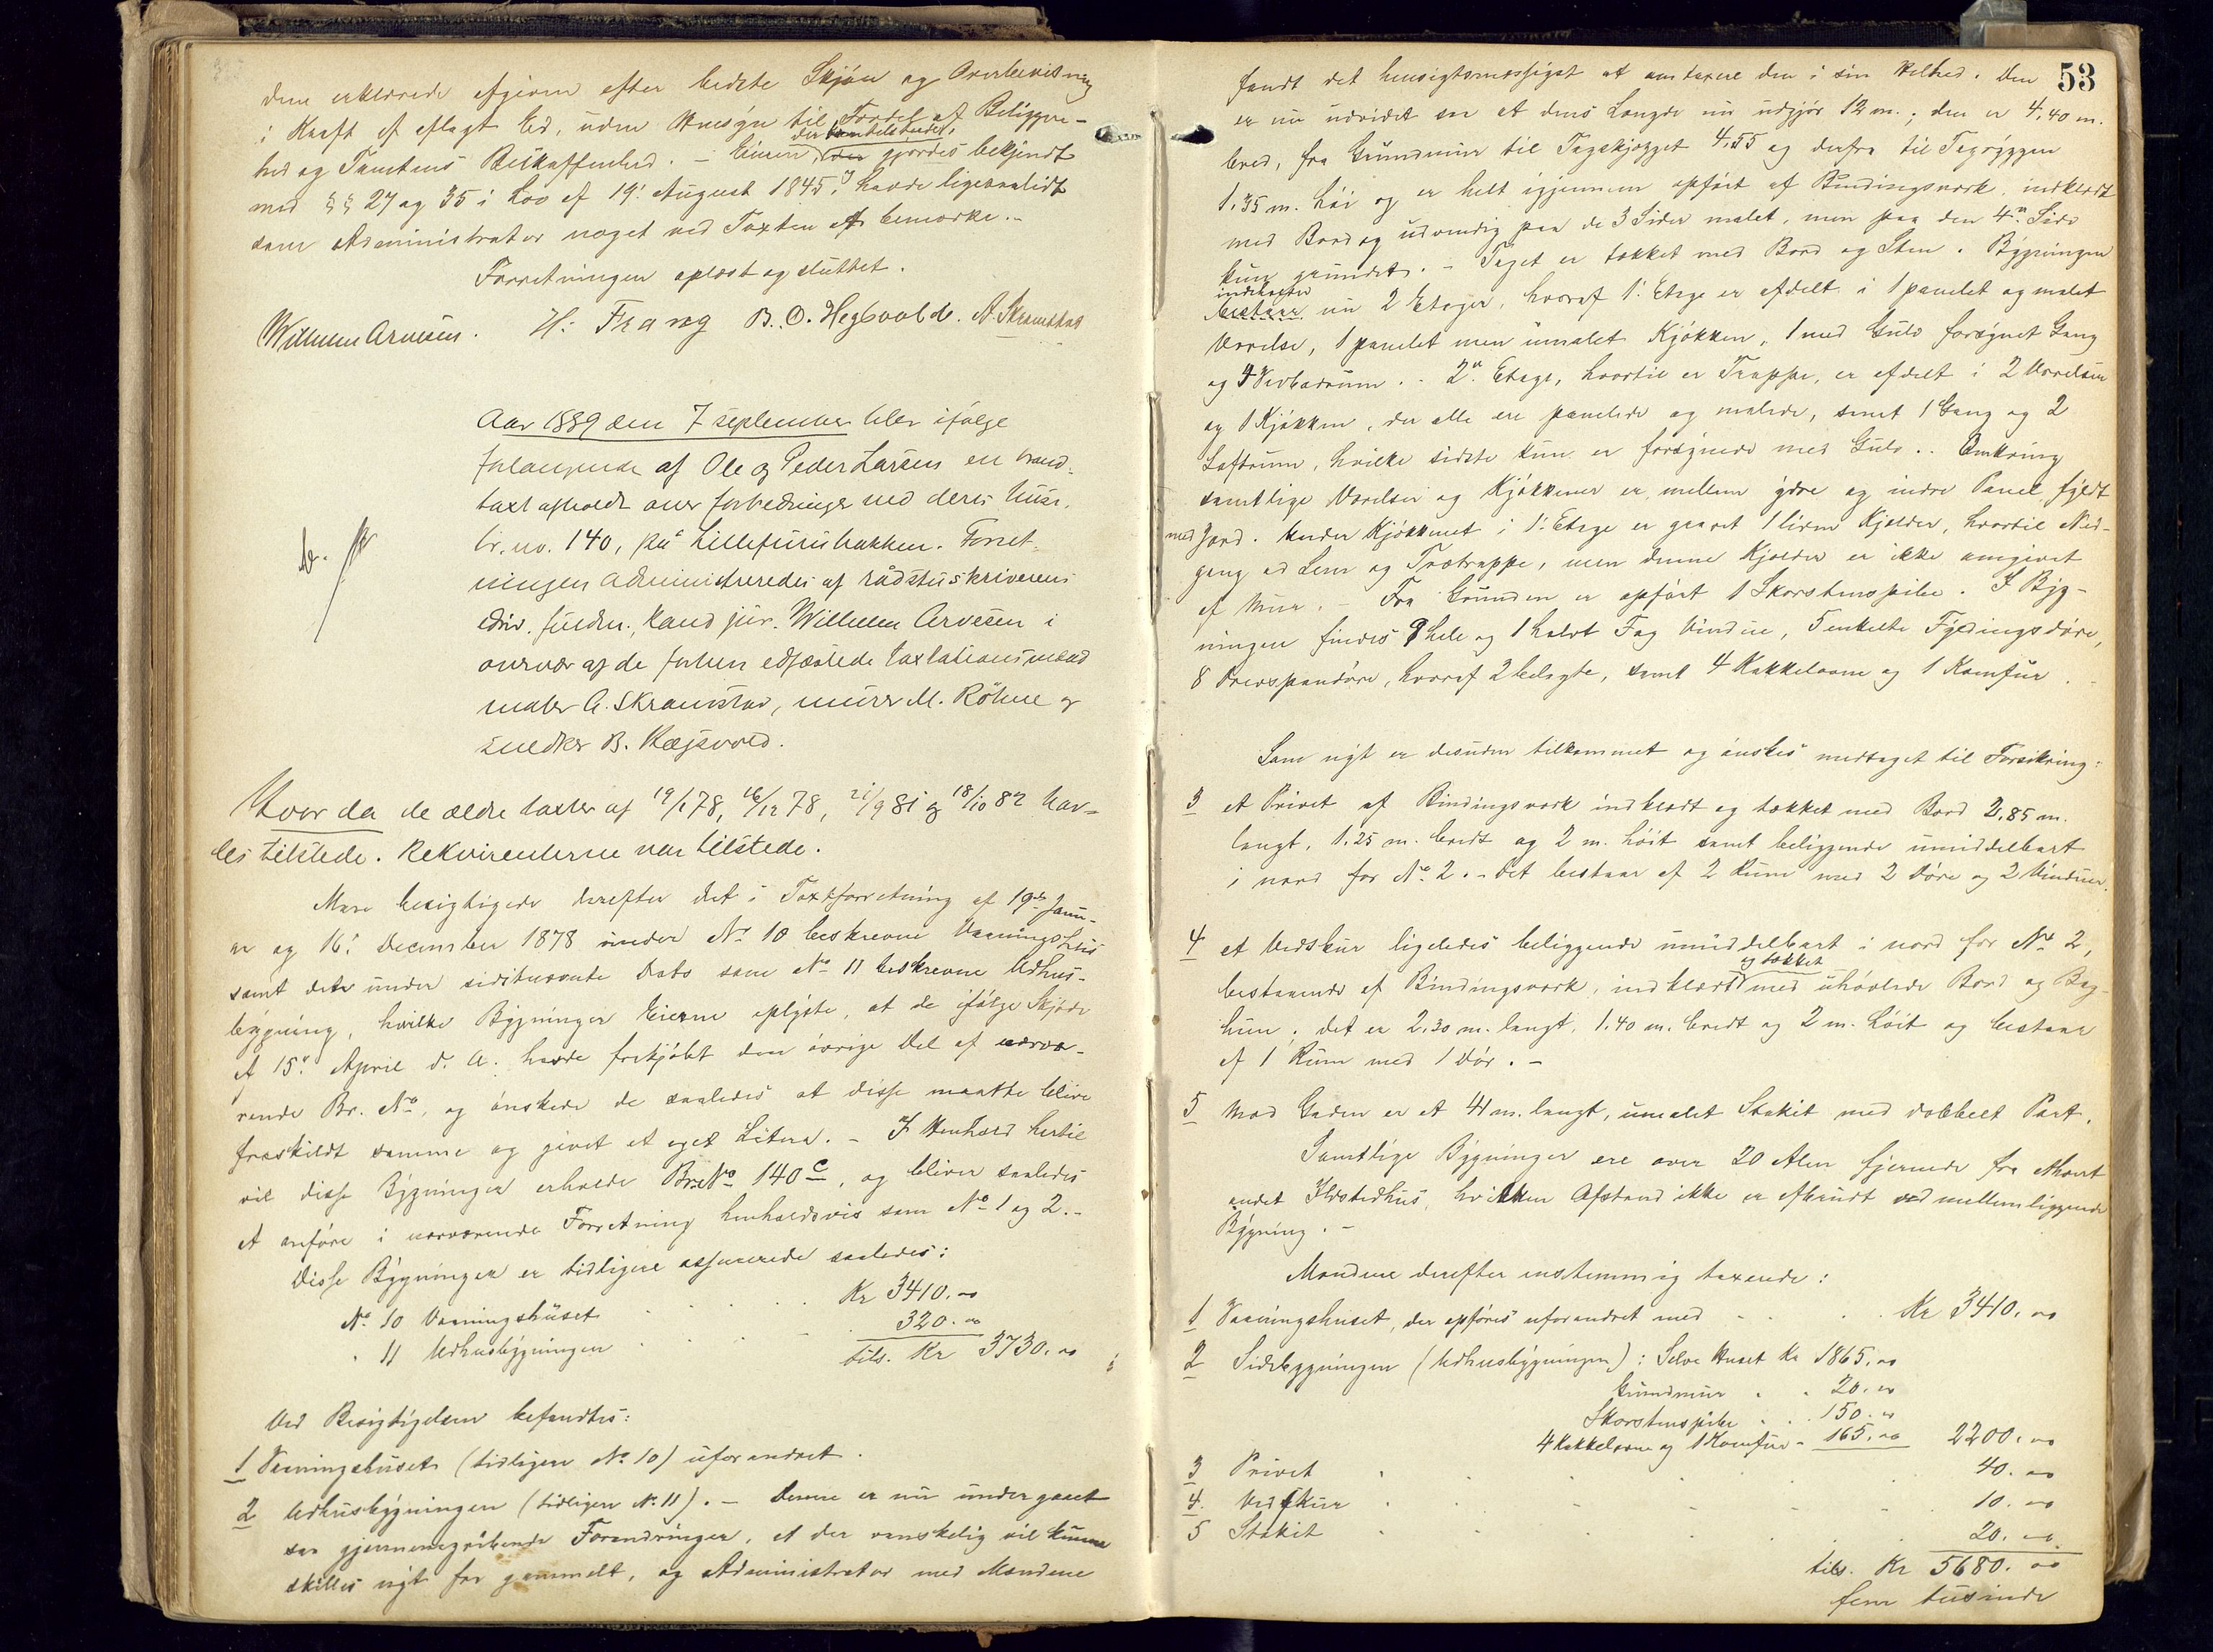 dene erklærede afgiven efter bedste Skjøn og Overbevisning
i Kraft af aflagt Ed, uden Hensyn til Fordel af Beliggen-
hed og Tomtens Beskaffenhed. – Eieren, der var tilstede, gjordes bekjendt
med §§ 27 og 35 i Lov af 19. August 1845, havde ligesaalidt
som Administrator noget ved Taxten at bemærke. –
Forretningen oplæst og sluttet.
Wilhelm Arvesen. H. Frang B. O. Hegsvolde. A. Skramstad
Aar 1889 den 7 september blev ifølge
forlangende af Ole og Peder Larsen en brand-
taxt afholdt over forbedringer ved deres huse,
br. no. 140, på Lillefurubakken. Forret-
ningen administreredes af rådstuskriverens
edsv. fuldm., kand jur. Wilhelm Arvesen i
overvær af de forhen edfæstede taxtationsmænd
maler A. Skramstad, murer M. Röhne og
snedker B. Hægsvold.
Hvor da de ældre taxter af 19/1 78, 16/12 78, 21/9 81 og 18/10 82 hav-
des tilstede. Rekvirenterne var tilstede.
Man besigtigede derefter det i Taxtforretning af 19de Janu-
ar og 16. December 1878 under No 10 beskrevne Vaaningshus
samt dets under sidstnævnte Dato som No 11 beskrevne Udhus-
bygning, hvilke Bygninger Eierne oplyste, at de ifølge Skjøde
af 15. April d. A. havde frakjøbt den øvrige Del af nærvæ-
rende Br. No, og ønskede de saaledes at disse maatte blive
fraskildt samme og givet et eget Litera. – I Henhold hertil
vil disse Bygninger erholde Br. No 140 c, og bliver saaledes
at anføre i nærværende Forretning henholdsvis som No 1 og 2. –
Disse Bygninger er tidligere assurerede saaledes:
No 10 Vaaningshuset . . . . Kr 3410. 00
" 11 Udhusbygningen . . . . 320. 00
tils. Kr 3730. 00
Ved Besigtigelsen befandtes:
1 Vaaningshuset (tidligere No 10) uforandret.
2 Udhusbygningen (tidligere No 11). – Denne er nu undergaaet
saa gjennemgribende Forandringer, at der vanskelig vil kunne
skilles nyt fra gammelt, og Administrator med Mændene
53
fandt det hensigtsmæssigst at omtaxere den i sin Helhed. Den
er nu udvidet saa at dens Længde nu udgjør 12 m.; den er 4,40 m.
bred, fra Grundmur til Tagskjægget 4,55 og derfra til Tagryggen
1,35 m. høi og er helt igjennem opført af Bindingsværk, indklædt
med Bord og udvendig paa de 3 Sider malet, men paa den 4de Side
kun grundet. – Taget er tækket med Bord og Sten. Bygningen
indeholder nu 2 Etager, hvoraf 1. Etage er afdelt i 1 panelet og malet
Værelse, 1 panelet men umalet Kjøkken, 1 med Gulv forsynet Gang
og 4 Vedbodrum. – 2. Etage, hvortil er Trappe, er afdelt i 2 Værelser
og 1 Kjøkken, der alle ere panelede og malede, samt 1 Gang og 2
Loftsrum, hvilke sidste kun er forsynede med Gulv. – Omkring
samtlige Værelser og Kjøkkener er mellem ydre og indre Panel fyldt
med Jord. Under Kjøkkenet i 1. Etage er gravet 1 liden Kjelder, hvortil Ned-
gang ad Lem og Trætrappe, men denne Kjelder er ikke omgivet
af Mur. – Fra Grunden er opført 1 Skorstenspibe. I Byg-
ningen findes 9 hele og 1 halvt Fag Vindue, 5 enkelte Fyldingsdøre,
8 Presspandøre, hvoraf 2 belagte, samt 4 Kakkelovne og 1 Komfur.
Som nyt er desuden tilkommet og ønskes medtaget til Forsikring:
3 et Privet af Bindingsværk indklædt og tækket med Bord 2,85 m.
langt, 1,25 m. bredt og 2 m. høit samt beliggende umiddelbart
i nord for No 2. – Det bestaar af 2 Rum med 2 Døre og 2 Vinduer.
4 et Vedskur ligeledes beliggende umiddelbart i nord for No 2,
bestaaende af Bindingsværk, indklædt og tækket med uhøvlede Bord og Bag-
hun; det er 2,30 m. langt, 1,40 m. bredt og 2 m. høit og bestaar
af 1 Rum med 1 Dør. –
5 Mod Gaden er et 41 m. langt, umalet Stakit med dobbelt Port.
Samtlige Bygninger ere over 20 Alen fjernede fra ethvert
andet Ildstedhus, hvilken Afstand ikke er afbrudt ved mellemliggende
Bygning. –
Mændene derefter enstemmig taxerede:
1 Vaaningshuset, der opføres uforandret med . . . Kr 3410. 00
2 Sidebygningen (Udhusbygningen): Selve Huset Kr 1865. 00
Grundmur . . 20. 00
Skorstenspibe . . 150. 00
4 Kakkelovne og 1 Komfur - 165. 00 2200. 00
3 Privet . . . . 40. 00
4. Vedskur . . . . 10. 00
5 Stakit . . . . 20. 00
tils. Kr 5680. 00
fem tusinde